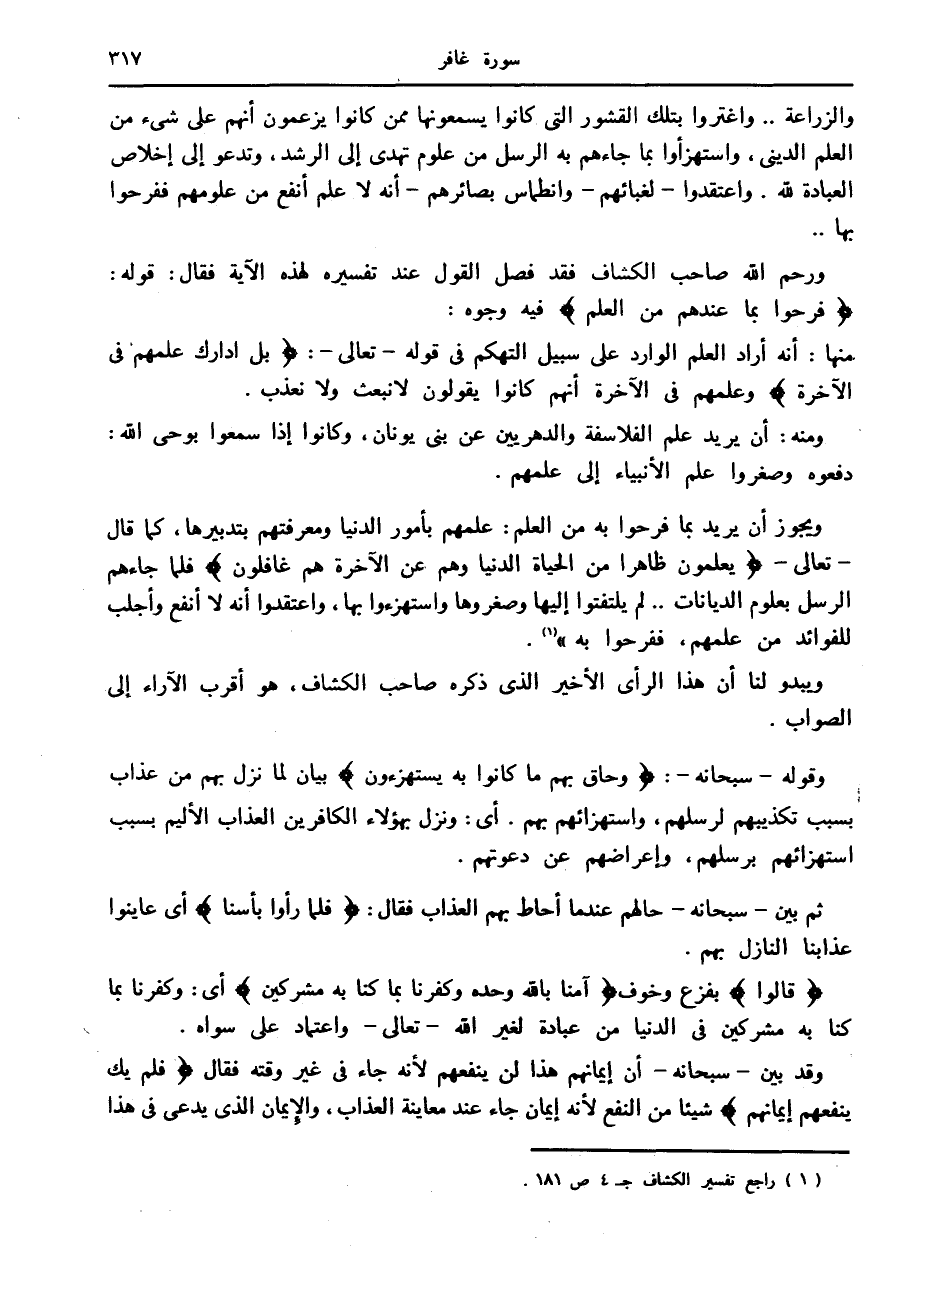 سورة غافر ٣١٧
والزراعة .. واغتروا بتلك القشور التى كانوا يسمعونها ممن كانوا يزعمون أنهم على شىء من
العلم الدينى ، واستهزأوا بما جاءهم به الرسل من علوم تهدى إلى الرشد ، وتدعو إلى إخلاص
العبادة لله . واعتقدوا - لغبائهم - وانطماس بصائرهم - أنه لا علم أنفع من علومهم ففرحوا
بها ..
ورحم الله صاحب الكشاف فقد فصل القول عند تفسيره لهذه الآية فقال : قوله :
﴿ فرحوا بما عندهم من العلم ﴾ فيه وجوه :
منها : أنه أراد العلم الوارد على سبيل التهكم فى قوله - تعالى - : ﴿ بل ادارك علمهم فى
الآخرة ﴾ وعلمهم فى الآخرة أنهم كانوا يقولون لانبعث ولا نعذب .
ومنه : أن يريد علم الفلاسفة والدهريين عن بنى يونان ، وكانوا إذا سمعوا بوحى الله :
دفعوه وصغروا علم الأنبياء إلى علمهم .
ويجوز أن يريد بما فرحوا به من العلم : علمهم بأمور الدنيا ومعرفتهم بتدبيرها ، كما قال
- تعالى - ﴿ يعلمون ظاهرا من الحياة الدنيا وهم عن الآخرة هم غافلون ﴾ فلما جاءهم
الرسل بعلوم الديانات .. لم يلتفتوا إليها وصغروها واستهزءوا بها ، واعتقدوا أنه لا أنفع وأجلب
للفوائد من علمهم ، ففرحوا به »(١) .
ويبدو لنا أن هذا الرأى الأخير الذى ذكره صاحب الكشاف ، هو أقرب الآراء إلى
الصواب .
وقوله - سبحانه - : ﴿ وحاق بهم ما كانوا به يستهزءون ﴾ بيان لما نزل بهم من عذاب
بسبب تكذيبهم لرسلهم ، واستهزائهم بهم . أى : ونزل بهؤلاء الكافرين العذاب الأليم بسبب
استهزائهم برسلهم ، وإعراضهم عن دعوتهم .
ثم بين - سبحانه - حالهم عندما أحاط بهم العذاب فقال : ﴿ فلما رأوا بأسنا ﴾ أى عاينوا
عذابنا النازل بهم .
﴿ قالوا ﴾ بفزع وخوف ﴿ آمنا بالله وحده وكفرنا بما كنا به مشركين ﴾ أى : وكفرنا بما
كنا به مشركين فى الدنيا من عبادة لغير الله - تعالى - واعتماد على سواه .
وقد بين - سبحانه - أن إيمانهم هذا لن ينفعهم لأنه جاء فى غير وقته فقال ﴿ فلم يك
ينفعهم إيمانهم ﴾ شيئا من النفع لأنه إيمان جاء عند معاينة العذاب ، والإيمان الذى يدعى فى هذا
( ١ ) راجع تفسير الكشاف جـ ٤ ص ١٨١ .